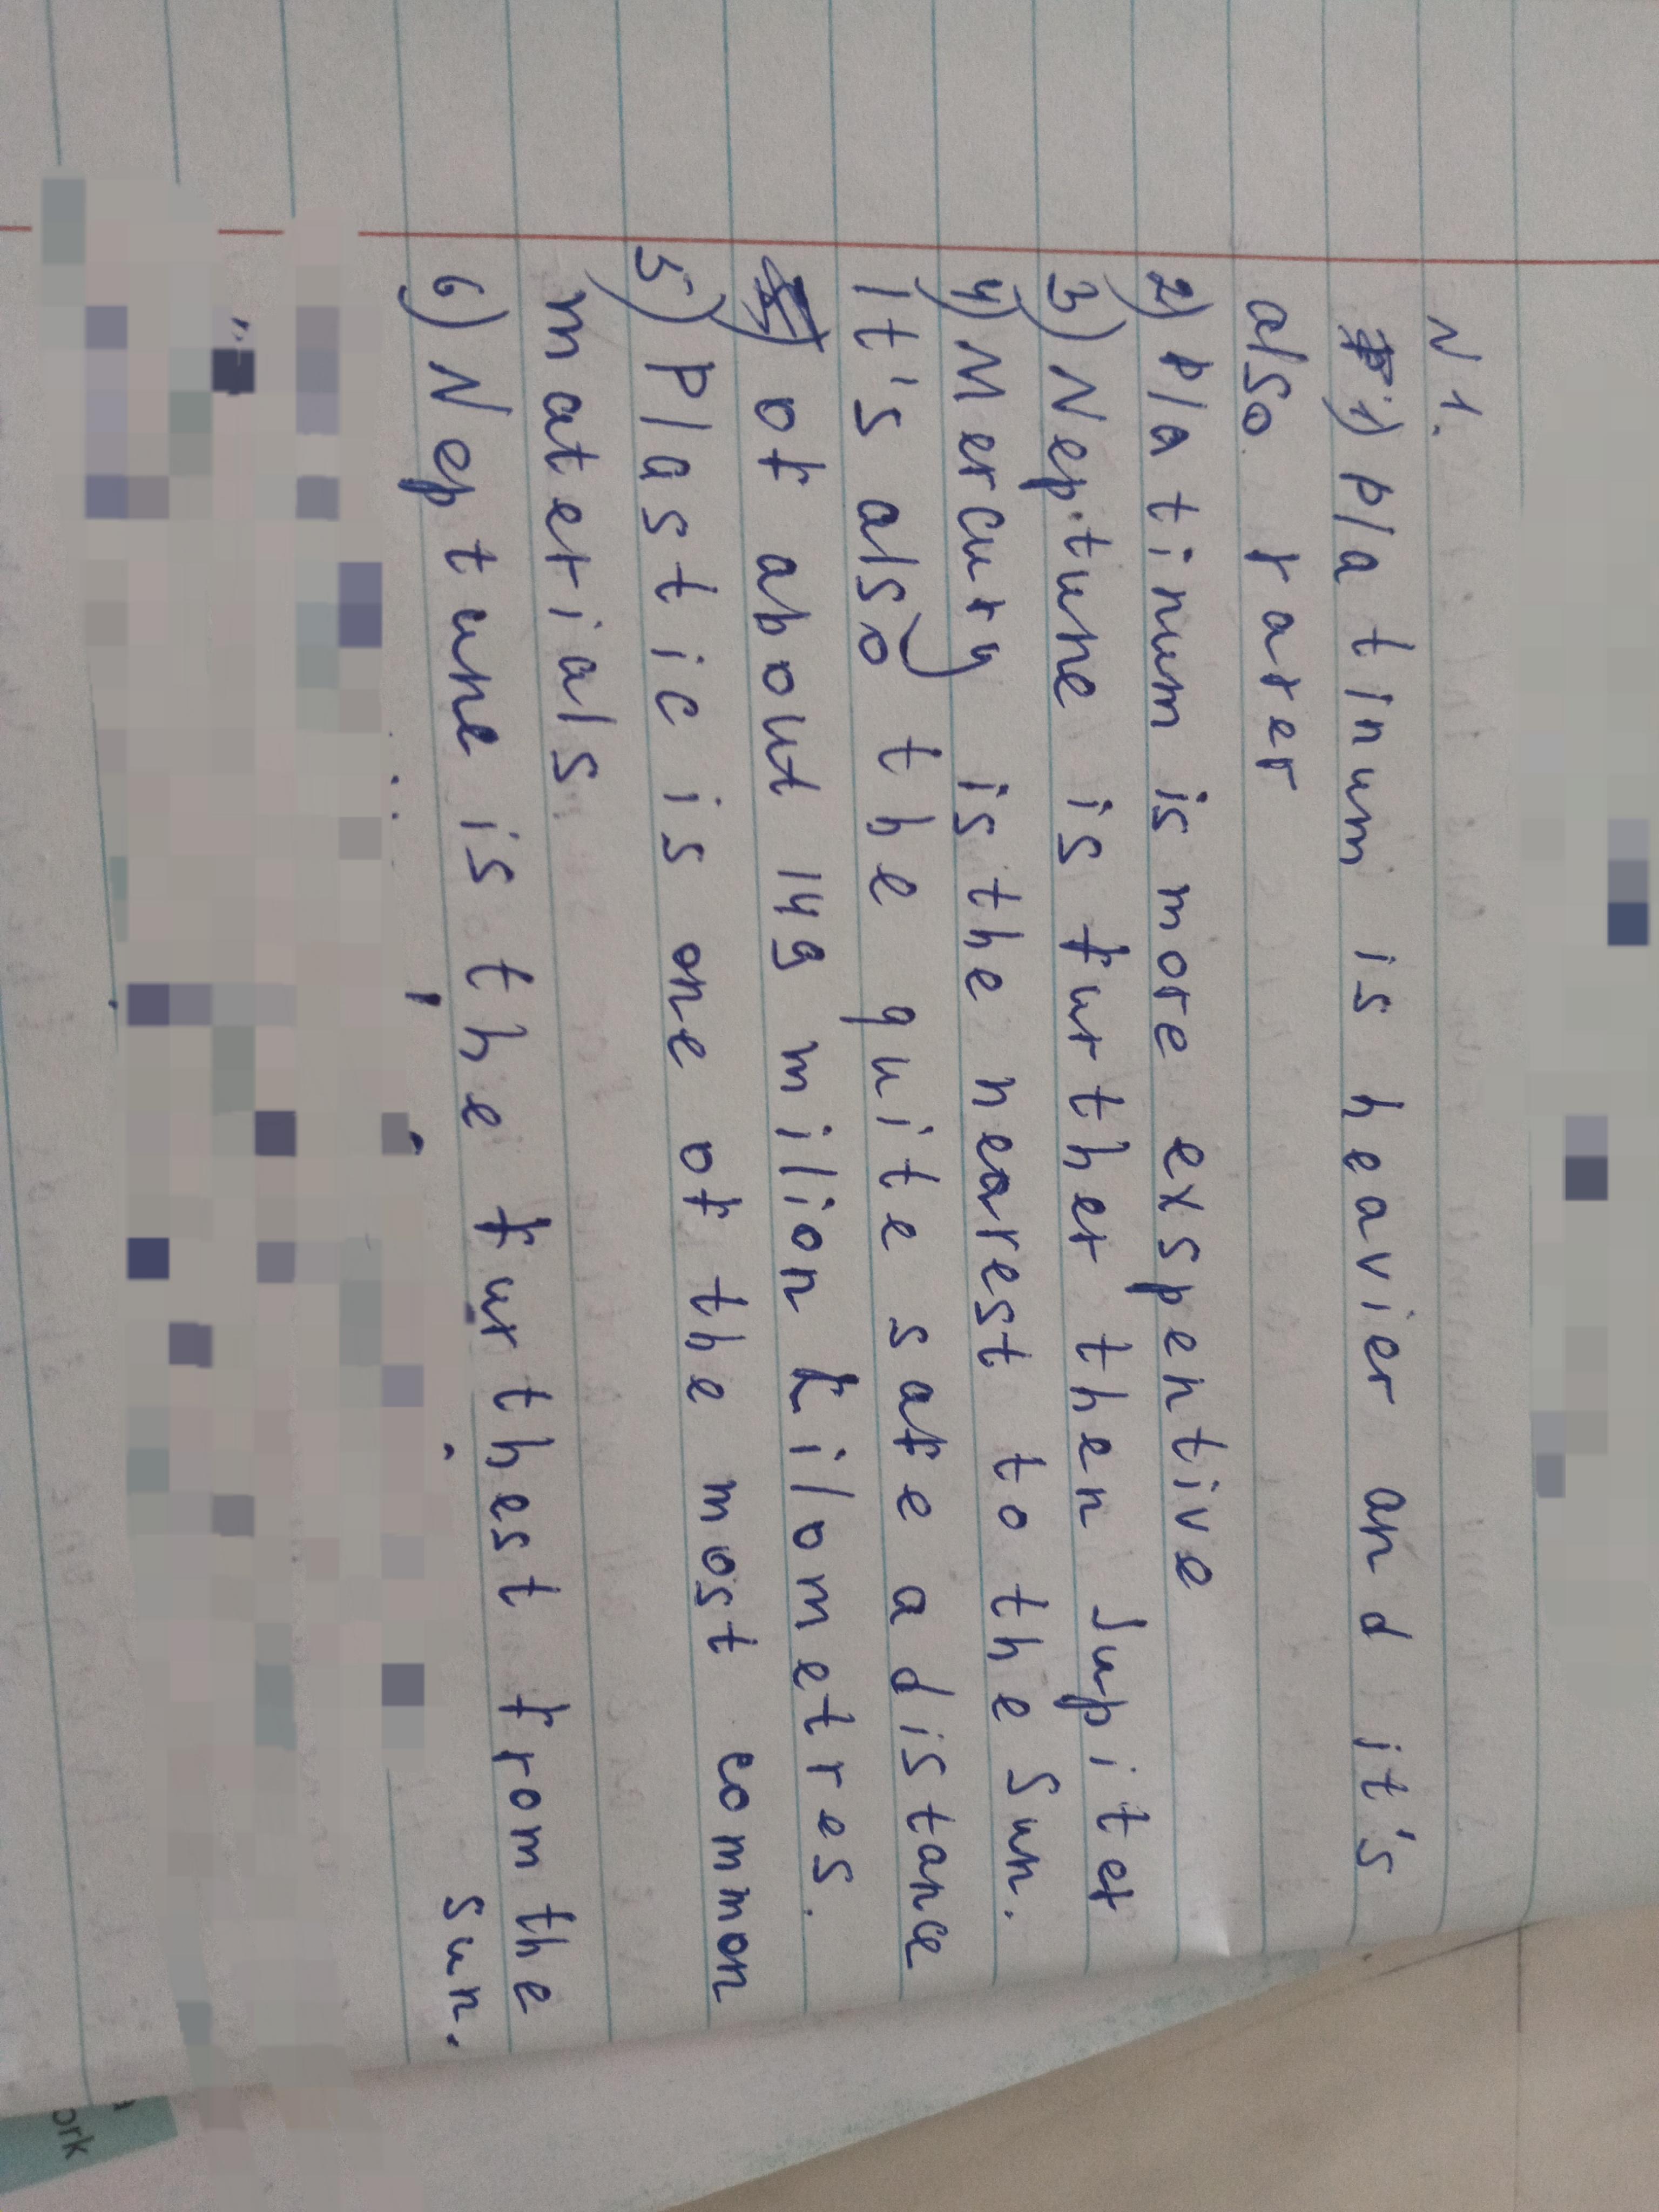 N 1.
1) Platinum is heavier and it's
also rarer
2) Platinum is more exspentive
3) Neptune is further then Jupiter
4) Mercury is the nearest to the Sun.
It's also the quite safe a distance
of about 149 milion kilometres.
5) Plastic is one of the most common
materials
6) Neptune is the furthest from the
sun.
ork